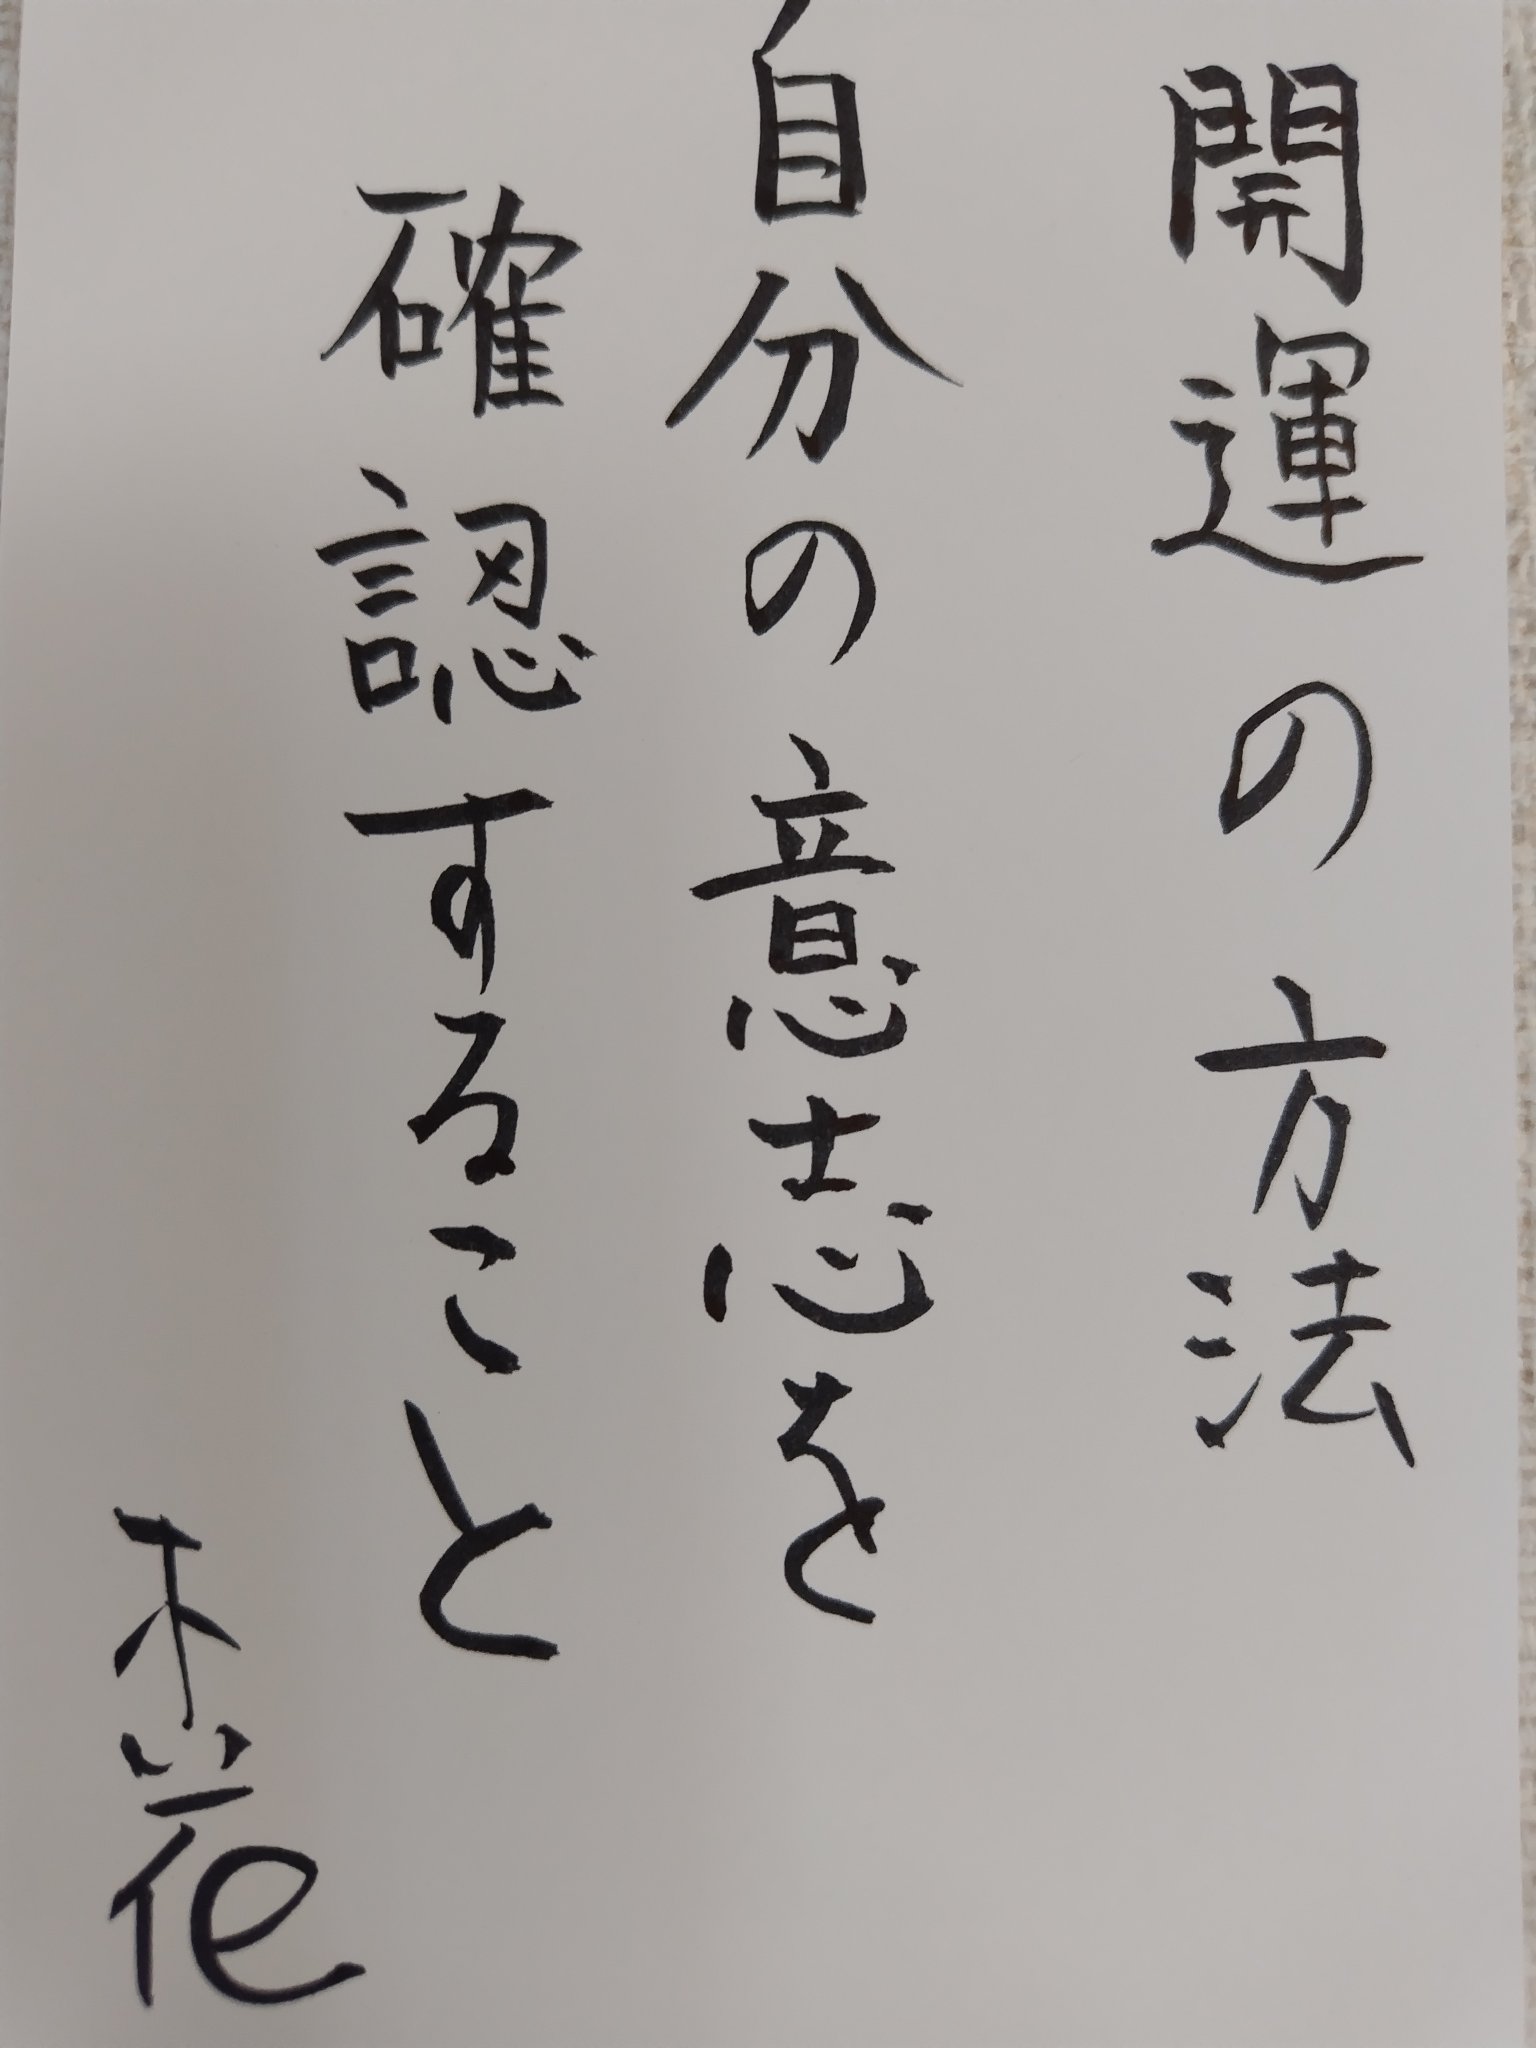 開運の方法
自分の意志を
確認すること
木花